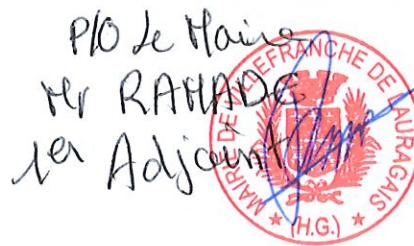 P/O Le Maire
Mr RAMADE
1er Adjoint
MAIRIE DE VILLEFRANCHE DE LAURAGAIS
★ (H.G.) ★